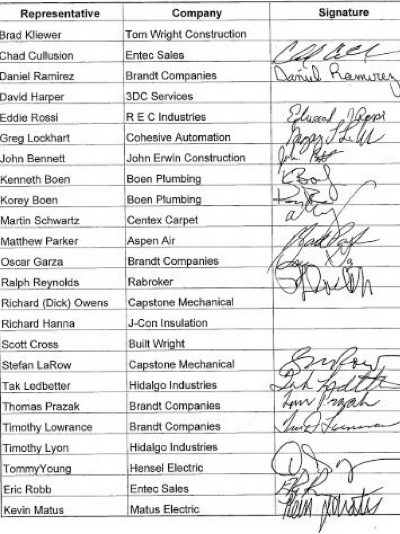 Representative Company Signature
Brad Kliewer Tom Wright Construction
Chad Cullusion Entec Sales
Daniel Ramirez Brandt Companies Daniel Ramirez
David Harper 3DC Services
Eddie Rossi R E C Industries Edward Rossi
Greg Lockhart Cohesive Automation
John Bennett John Erwin Construction
Kenneth Boen Boen Plumbing
Korey Boen Boen Plumbing
Martin Schwartz Centex Carpet
Matthew Parker Aspen Air
Oscar Garza Brandt Companies
Ralph Reynolds Rabroker
Richard (Dick) Owens Capstone Mechanical
Richard Hanna J-Con Insulation
Scott Cross Built Wright
Stefan LaRow Capstone Mechanical
Tak Ledbetter Hidalgo Industries Tak Ledbetter
Thomas Prazak Brandt Companies Tom Prazak
Timothy Lowrance Brandt Companies
Timothy Lyon Hidalgo Industries
TommyYoung Hensel Electric
Eric Robb Entec Sales
Kevin Matus Matus Electric Kevin Matus